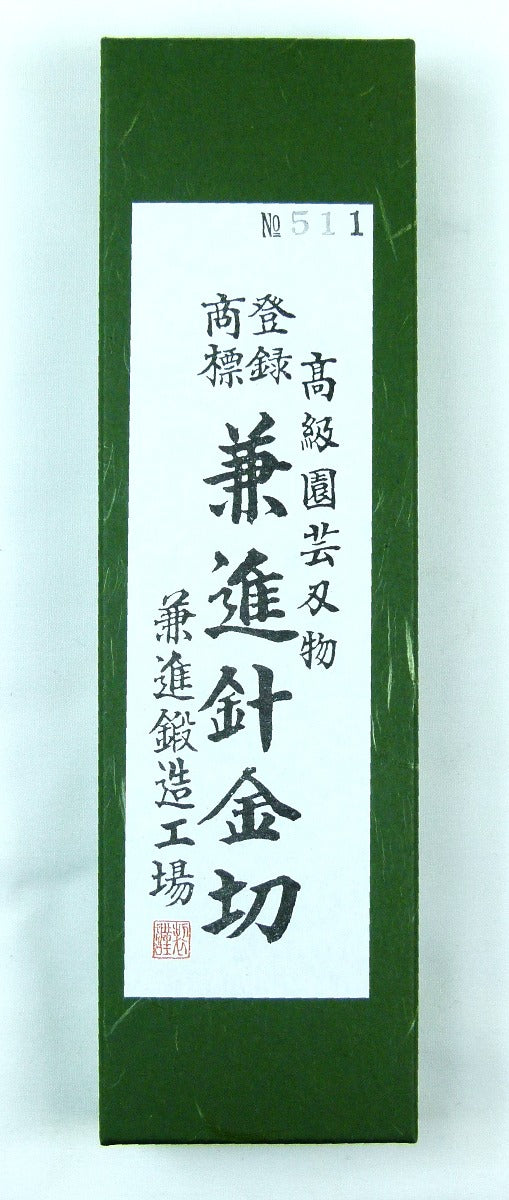 №511
高級園芸刃物
登録
商標
兼進針金切
兼進鍛造工場